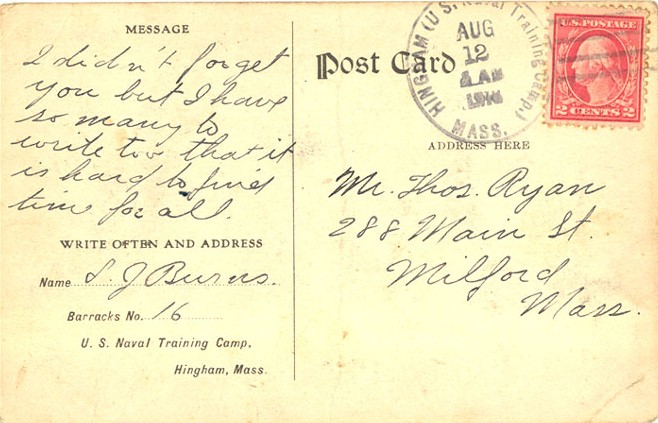 MESSAGE
I didn't forget
you but I have
so many to
write too that it
is hard to find
time for all.
WRITE OFTEN AND ADDRESS
Name S. J Burns.
Barracks No. 16
U. S. Naval Training Camp,
Hingham, Mass.
Post Card
HINGHAM (U. S. Naval Training Camp)
AUG
12
MASS.
U.S. POSTAGE
2 CENTS 2
ADDRESS HERE
Mr. Thos. Ryan
288 Main St.
Milford
Mass.